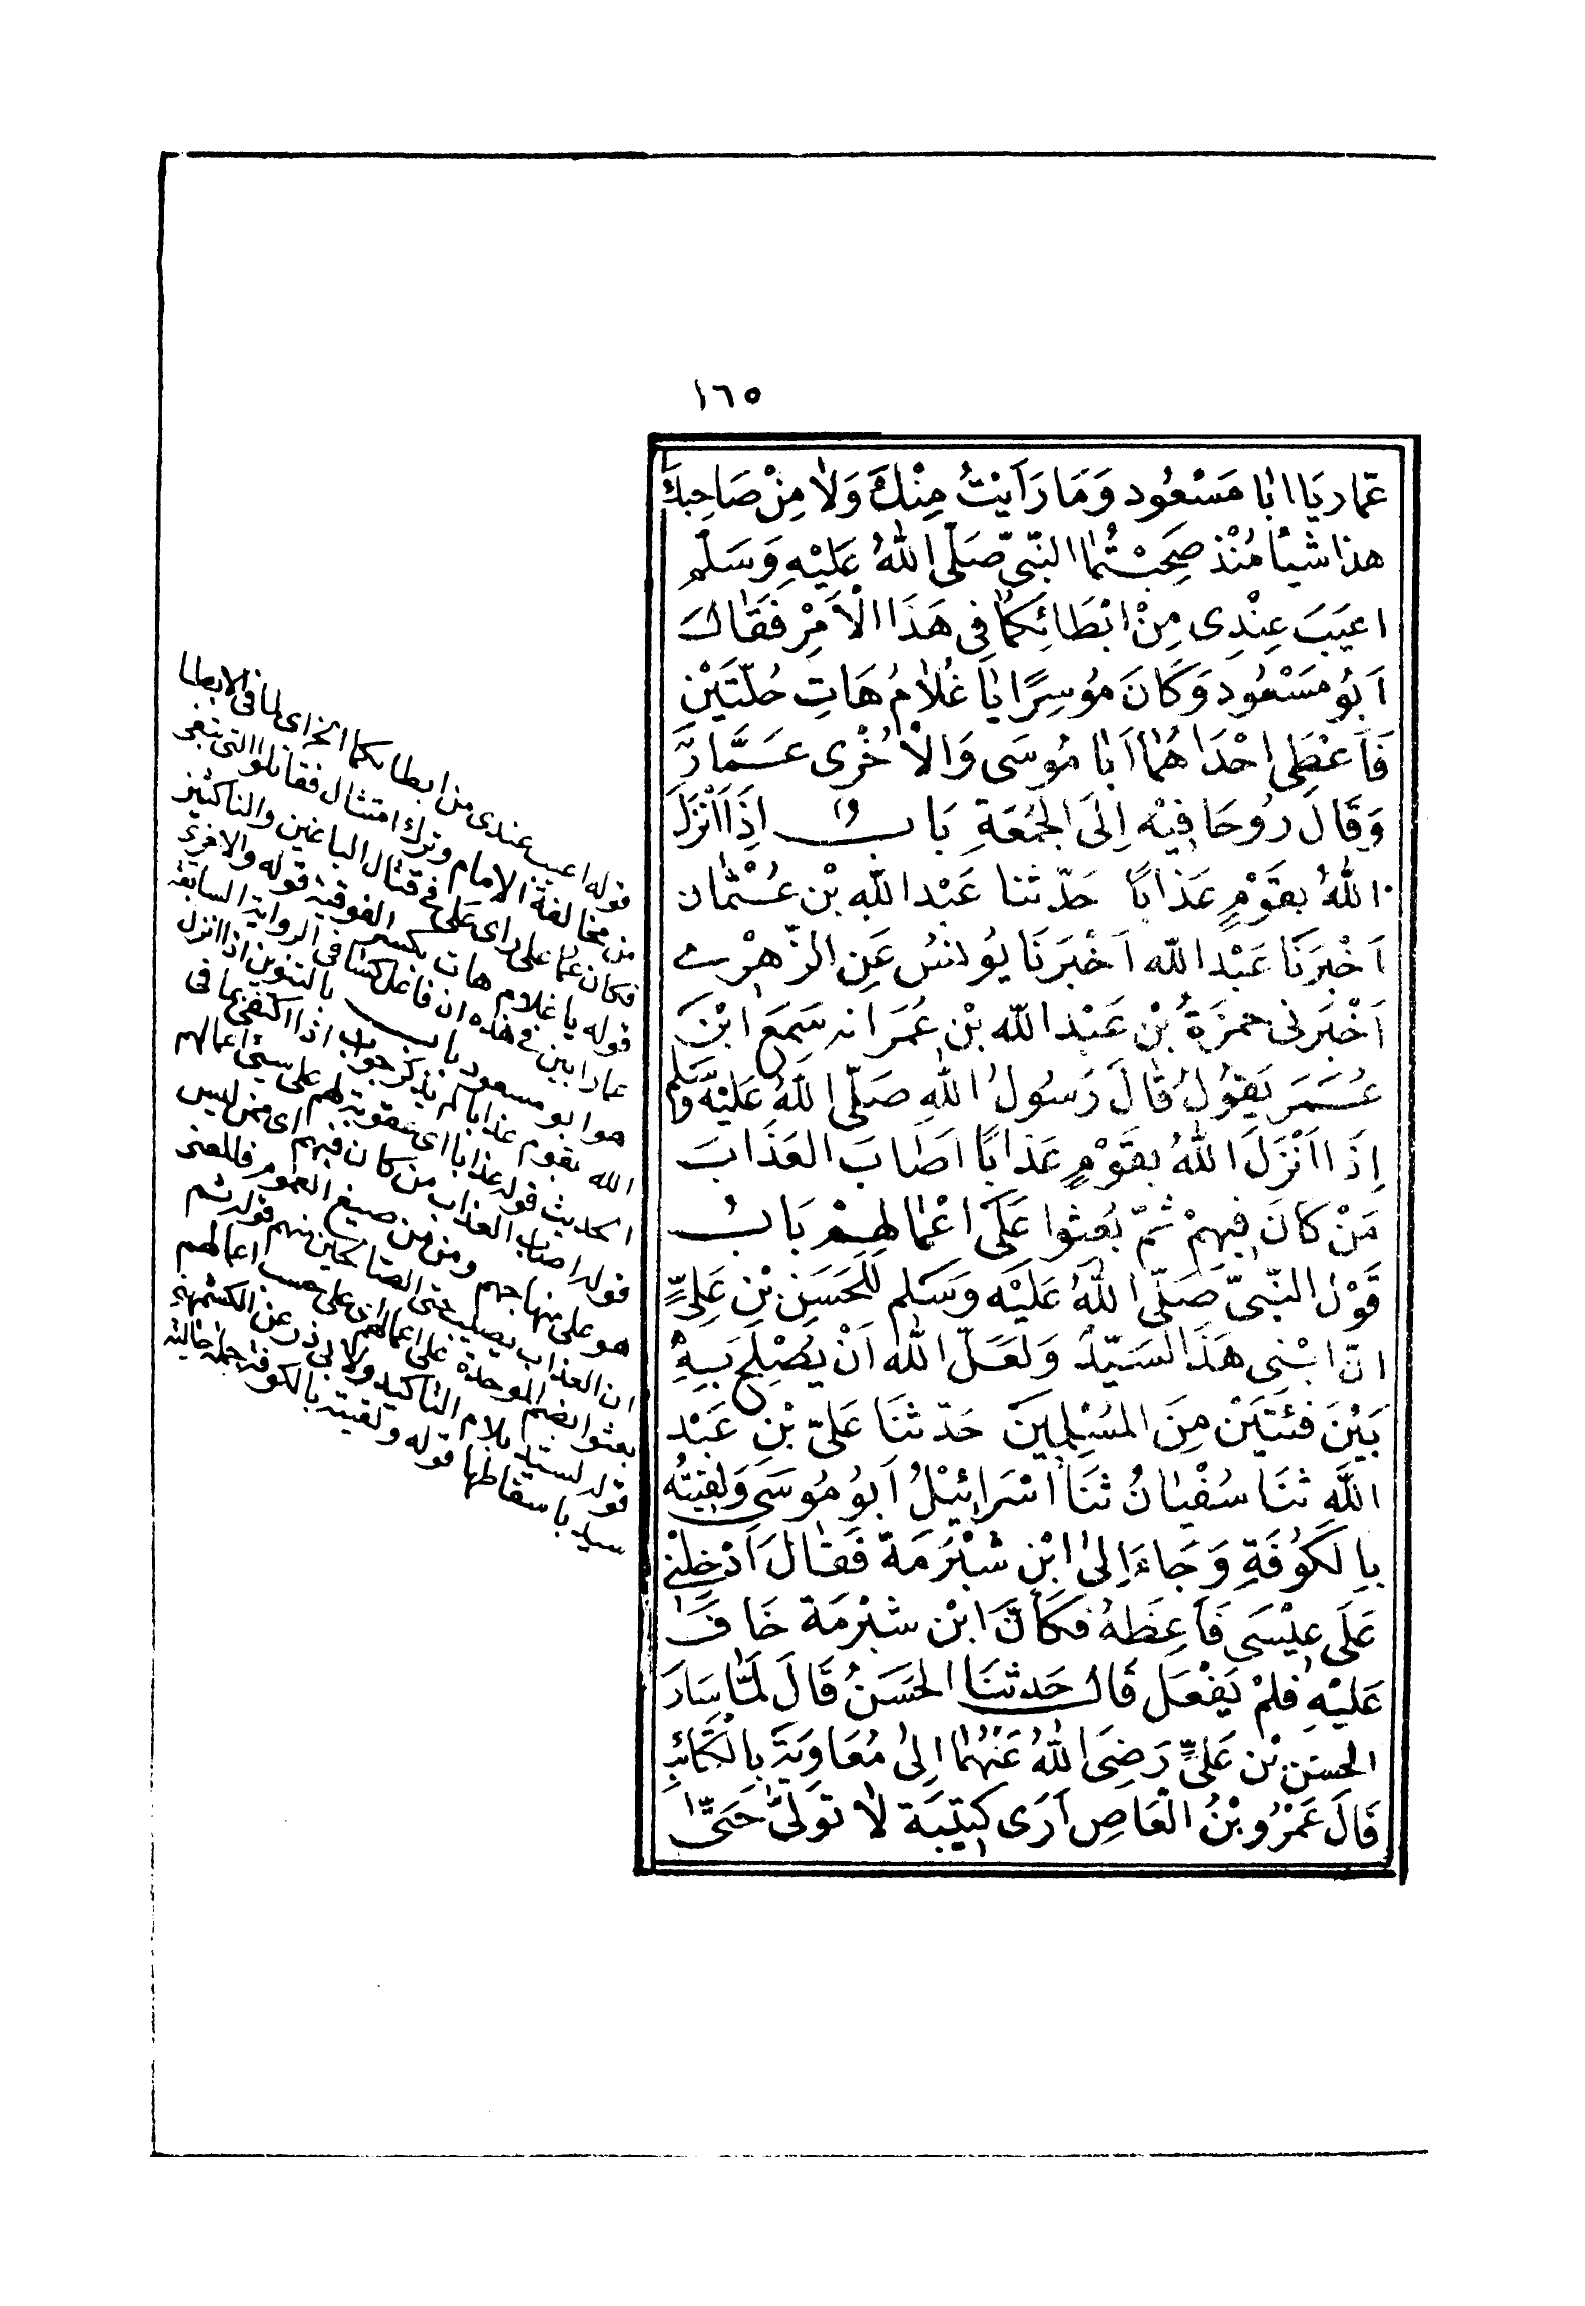 ١٦٥
عمّار يَا ابٰا مَسْعُود وَمَا رَاَيْتُ مِنْكَ وَلاٰ مِنْ صَاحِبكَ
هذا شيئًا مُنْذ صَحِبْتُمٰا النّبىّ صَلّى اللهُ عَلَيْهِ وَسَلّم
اعيَبَ عِنْدِى مِنْ ابْطَائِكُمٰا فِى هَذَا الْاَمْرِ فَقٰالَ
اَبُو مسَعْوُد وَكَانَ مؤسِرًا يٰا غُلاٰمُ هَاتِ حُلّتَيْنِ
فَاَعْطٰى اِحْدَاهُمٰا اَبٰا مُوسَى وَالْاُخْرى عَمَّارًا
وَقَالَ رُوحَا فِيْه اِلَى الجُمُعَةِ بَابٌ اِذَا اَنْزَلَ
اللهُ بِقَوْمٍ عَذَابًا حَدّثنا عَبْد اللهِ بْن عُسْثمٰان
اَخْبَرَنَا عَبْد الله اَخْبَرَنَا يُونسُ عَنِ الزّهْرِى
اَخْبَرَنى حمزَةُ بْن عَبْد الله بْن عُمَرَ انه سَمِعَ ابْنَ
عُمَرَ يَقوُلُ قٰالَ رَسُولُ اللهِ صَلّى اللهُ عَلَيْه وَسَلم
اِذَا اَنْزَلَ اللهُ بِقَوْمٍ عَذَابًا اصَابَ العَذَابَ
مَنْ كَانَ فيهِمْ ثمّ بُعِثوا عَلَى اعْمٰالِهِمْ بَابُ
قَوْل النّبىّ صَلّى اللهُ عَلَيْه وَسَلم لِلحَسَنِ بْنِ عَلِىٍّ
انّ ابْنى هَذَا لَسَيّدٌ وَلَعَلّ الله اَنْ يُصْلِحَ بِهِ
بَيْنَ فئَتَيْنِ مِنَ المسْلِمِينَ حَدّثنَا عَلىّ بْنِ عَبْد
اللهِ ثنَا سُفْيٰانُ ثنَا اسْرَائِيْلُ اَبُو مُوسَى وَلَقِيتُه
بِالكَوُفَةِ وَجَاءَ اِلىٰ ابْن شبْرُمَة فَقٰالَ اَدْخِلْنى
عَلَى عِيْسَى فَاَعِظَهُ فكَاَنَّ ابْن شبْرْمَة خَافَ
عَليْهِ فلَمْ يَفْعَل قَالَ حَدثنَا الحسَنُ قَالَ لَمّٰا سَارَ
الحسَن بْن عَلىٍّ رَضِىَ اللهُ عَنْهُمٰا اِلىٰ مُعَاوِيَةَ بِالكَتَائِبِ
قَالَ عَمْرُو بْنُ العَاصِ اَرَى كتِيْبَة لاٰ توَلىّ حَتىّٰ
قوله اعيب عندى من ابطائكما الخ اى لما فى الابطا
من مخالفة الامام وترك امتثال فقاتلوا التى تبغى
فكان عمار على راى على فى قتال الباغين والناكثين
قوله يا غلام هات بكسر الفوقية قوله والاخرى
عمارا بين فى هذه ان فاعل كسا فى الرواية السابقة
هو ابو مسعود باب بالتنوين اذا انزل
الله بقوم عذابا لم يذكر جواب اذا اكتفى بما فى
الحديث قوله عذابا اى عقوبة لهم على سيئ اعمالهم
قوله اصاب العذاب من كان فيهم اى ممن ليس
هو على منهاجهم ومن من صيغ العموم فالمعنى
ان العذاب يصيب حتى الصالحين منهم قوله ثم
بعثوا بضم الموحدة على اعمالهم اى على حسب اعمالهم
قوله لسيد بلام التاكيد ولابى ذر عن الكشمهنى
سيد باسقاطها قوله ولقيته بالكوفة جملة حالية